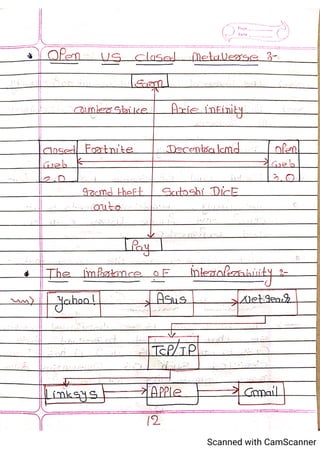 Open VS Closed Metaverse :-
Earn
counter strike Axie infinity
closed Fortnite Decentraland Open
web web
2.0 3.0
grand theft Satoshi DicE
auto
Pay
The importance of interoperability :-
Yahoo! Asus Netgear
TCP/IP
Linksys APPle Gmail
12
Scanned with CamScanner